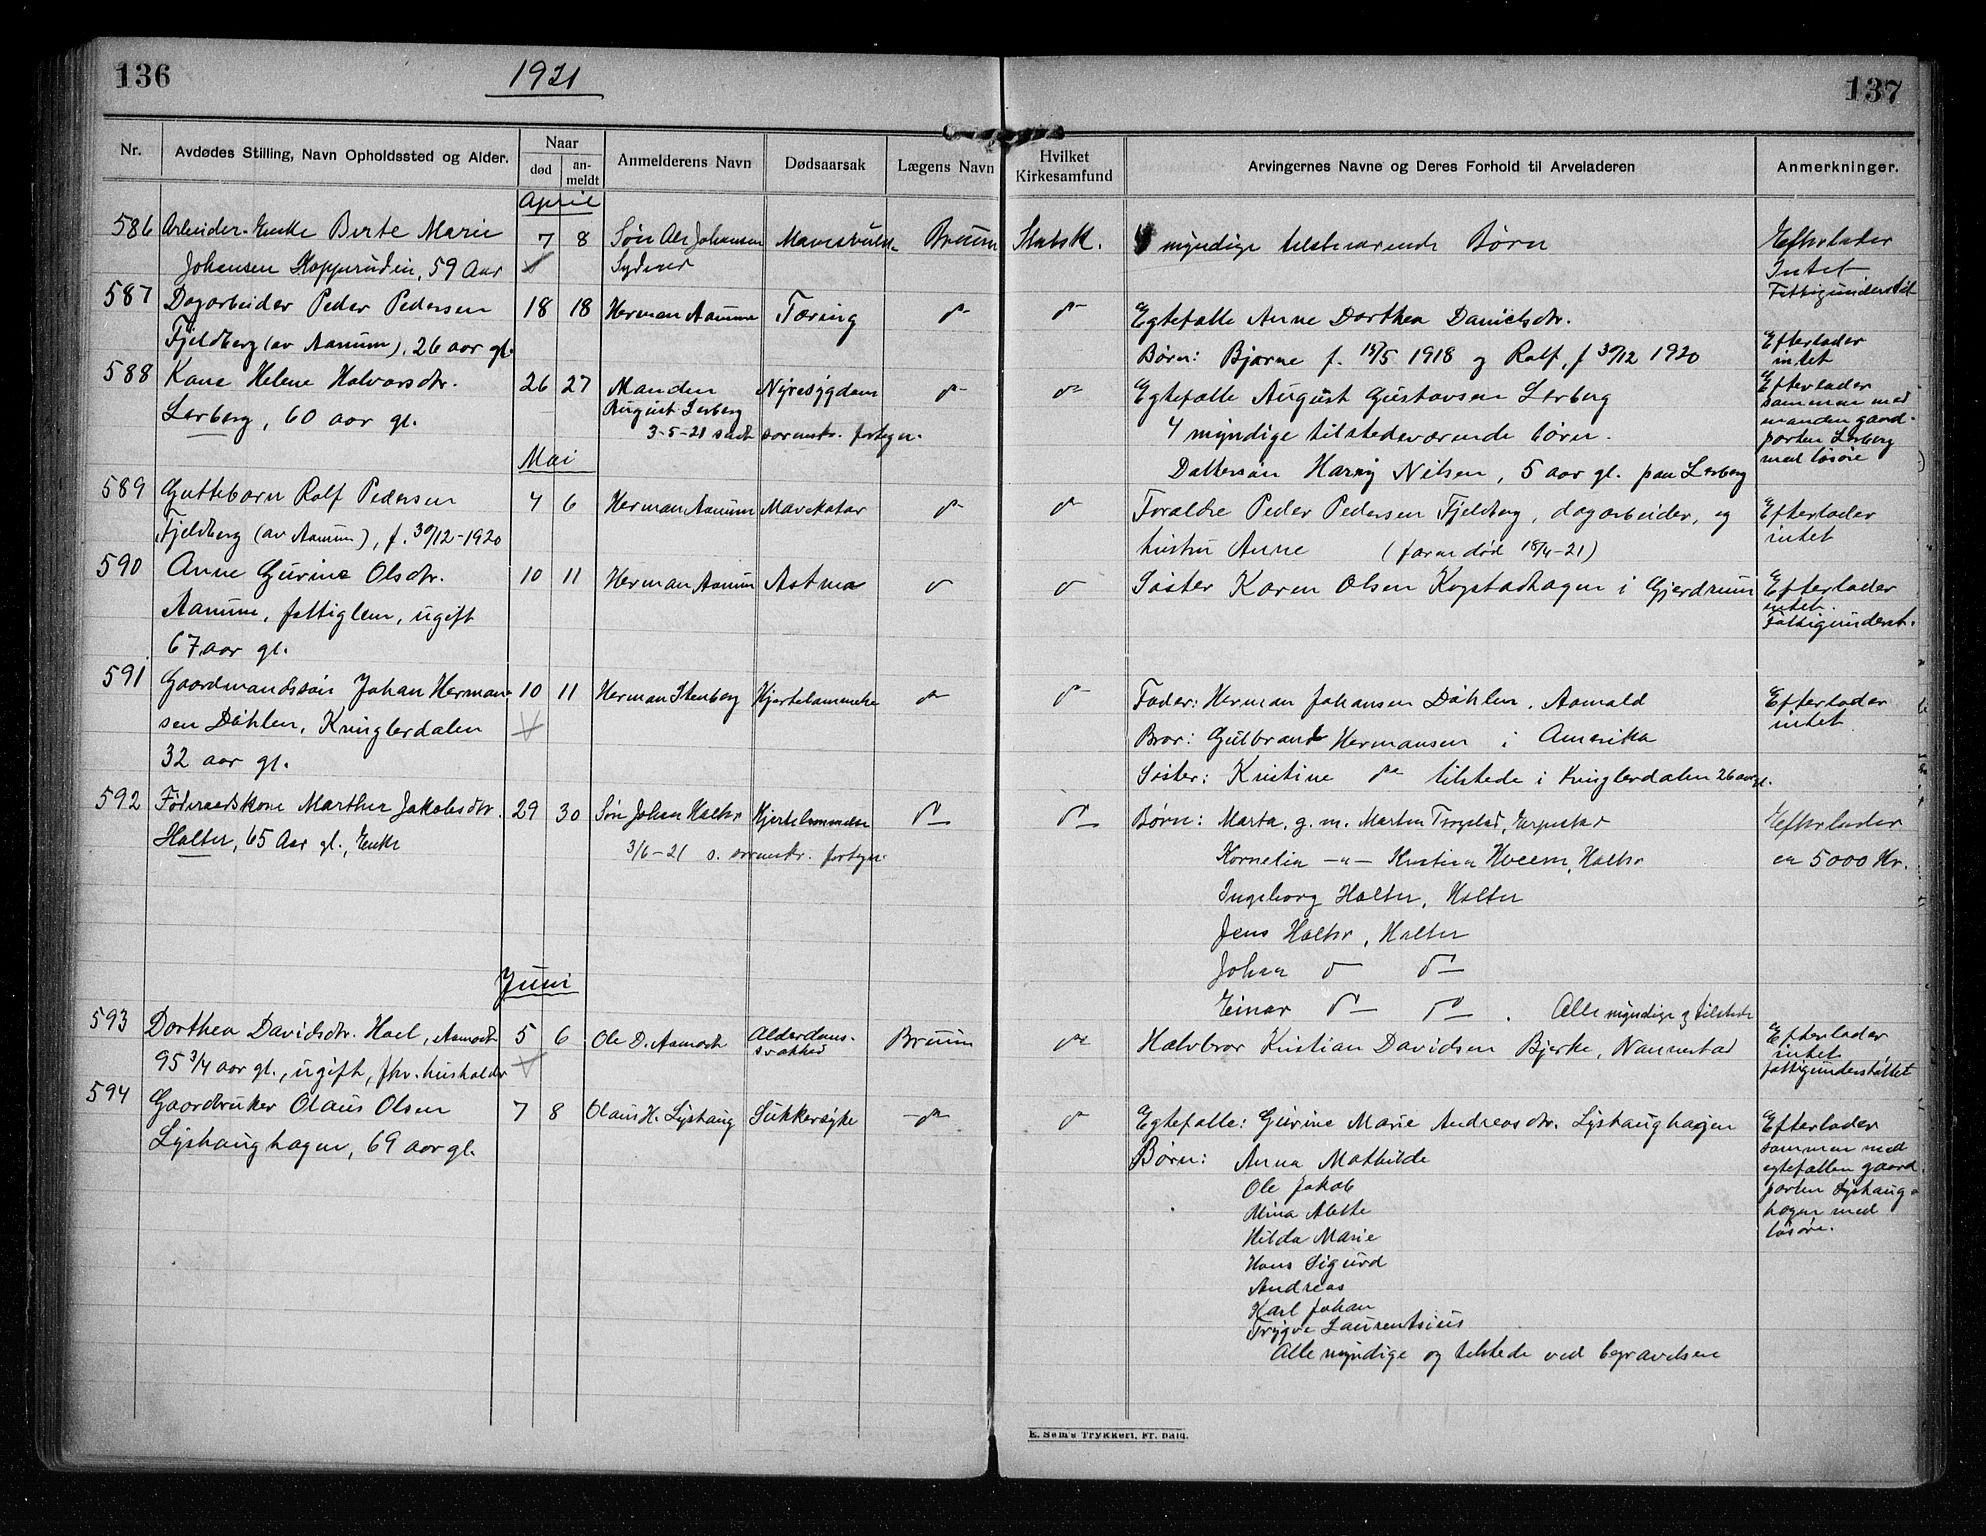 136
1921
137
Nr.
Avdødes Stilling, Navn Opholdssted og Alder.
Naar
død
an-
meldt
Anmelderens Navn
Dødsaarsak
Lægens Navn
Hvilket
Kirkesamfund
Arvingernes Navne og Deres Forhold til Arveladeren
Anmerkninger.
April
586 Arbeider-Enke Berte Marie 7 8 Søn Johansen Bruun Statsk. 4 myndige tilsteværende Børn Efterlader
Johansen Kopperudeie, 59 Aar Intet
Fattigunderst
587 Dagarbeider Peder Pedersen 18 18 Herman Aamum Tæring do do Egtefælle Anne Dorthea Danielsdtr.
Fjeldberg (av Aanum), 26 aar gl. Børn: Bjarne f. 15/5 1918 og Rolf, f 30/12 1920 Efterlader
intet
588 Kone Helene Halvorsdtr. 26 27 Manden Nyresygdom do do Egtefælle August Gustavsen Lerberg Efterlader
Lerberg, 60 aar gl. August Lerberg 4 myndige tilstedeværende børn. sammen med
3-5-21 sendt sorenskr. fortegn. manden gaard-
Dattersøn Harry Nilsen, 5 aar gl. paa Lerberg parten Lerberg
med løsøre
Mai
589 Guttebarn Rolf Pedersen 4 6 Herman Aanum Mavekatar do do Forældre Peder Pedersen Fjeldberg, dagarbeider, og Efterlader
Fjeldberg (av Aanum), f. 30/12-1920 hustru Anne (faren død 18/4-21) intet
590 Anne Gurine Olsdtr. 10 11 Herman Aanum Astma do do Søster Karen Olsen Kogstadhagen i Gjerdrum Efterlader
Aanum, fattiglem, ugift intet.
67 aar gl. Fattigunderst.
591 Gaardmandssøn Johan Herman- 10 11 Herman Stenberg Hjertelammelse do do Fader: Herman Johansen Døhlen, Aamold Efterlader
sen Døhlen, Kringlerdalen Bror: Gulbrand Hermansen i Amerika intet
32 aar gl. Søster: Kristine do tilstede i Kringlerdalen 26 aar gl.
592 Føderaadskone Marthe Jakobsdtr. 29 30 Søn Johan Holter Hjertelammelse do do Børn: Marta, g. m. Martin Trogstad, Efterlader
Holter, 65 Aar gl., Enke 3/6-21 s. sorenskr. fortegn. Kornelia -"- Kristian Hveem, Holter ca 5000 Kr.
Ingeborg Holter, Holter
Jens Holter, Holter
Johan do do
Einar do do. Alle myndige og tilstede
Juni
593 Dorthea Davidsdtr. Hoel, Aamodt 5 6 Ole D. Aamodt Alderdoms- Bruun do Halvbror Kristian Davidsen Bjerke, Nannestad Efterlader
95 3/4 aar gl., ugift, fhv. husholder svakhed intet
fattigunderstøttet
594 Gaardbruker Olaus Olsen 7 8 Olaus H. Lyshaug Sukkersyke do do Egtefælle: Gurine Marie Andreasdtr. Lyshaughagen Efterlader
Lyshaughagen, 69 aar gl. Børn: Anna Mathilde sammen med
Ole Jakob egtefællen gaard-
Alina Alette parten Lyshaug-
Hilda Marie hagen med
Hans Sigurd løsøre.
Andreas
Karl Johan
Trygve Laurentsius
Alle myndige og tilstede ved begravelsen
E. Sem's Trykkeri, Fr.hald.